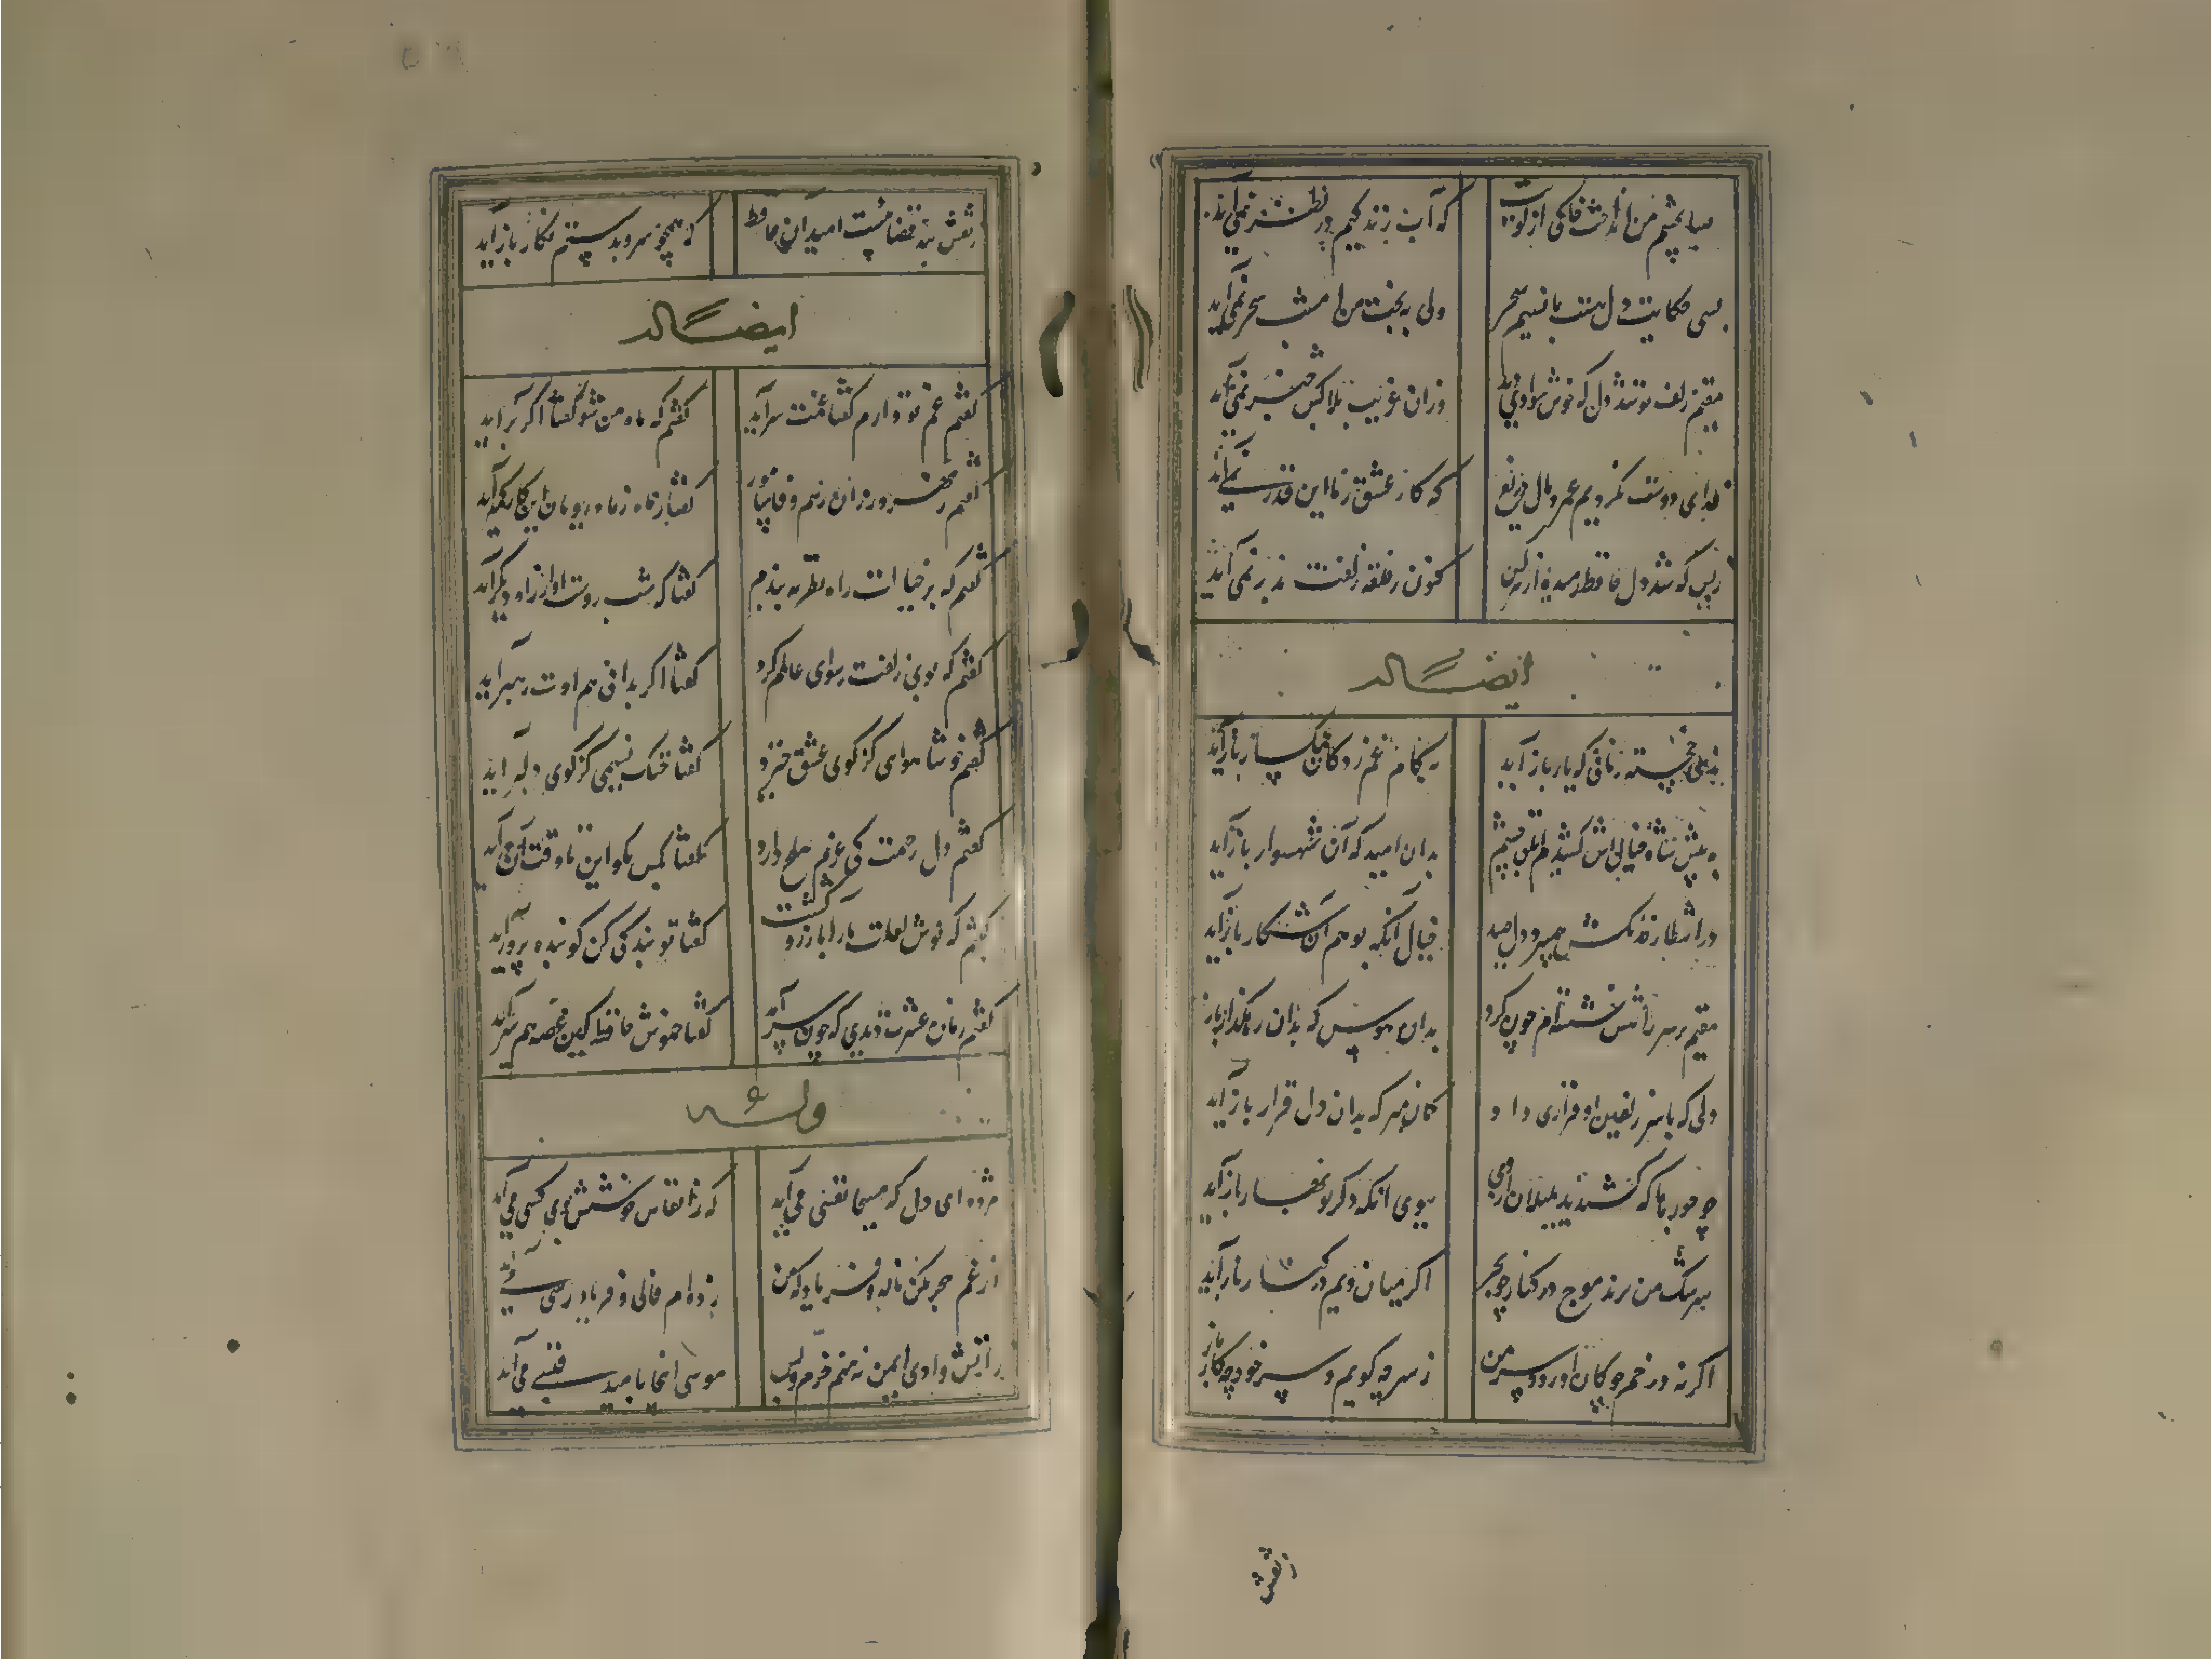 صبا بچشم من انداخت خاکی از کویت
که آب زندگیم در نظر نمی آید
بسی حکایت دل هست با نسیم سحر
ولی به بخت من امشب سحر نمی آید
مقیم زلف تو شد دل که خوش سوادی دید
وزان غریب بلاکش خبر نمی آید
فدای دوست نکردیم عمر و مال دریغ
که کار عشق ز ما این قدر نمی آید
ز بس که شد دل حافظ رمیده از همه کس
کنون ز حلقه زلفت بدر نمی آید
ایضاً له
زهی خجسته زمانی که یار باز آید
بکام غم زدکان غمگسار باز آید
به پیش شاه خیالش کشیدم ابلق چشم
بدان امید که آن شهسوار باز آید
در انتظار خدنکش همی پرد دل صید
خیال آنکه بوهم آن شکار باز آید
مقیم بر سر راهش نشسته ام چون کرد
بدان هوس که بدان رهکذار باز
دلی که با سر زلفین او قراری داد
کمان مبر که بدان دل قرار باز آید
چه جورها که کشیدند بلبلان از دی
ببوی آنکه دکر نوبهار باز آید
سرشک من نزند موج در کنار چو بحر
اکر میان ویم در کنار باز آید
اکر نه در خم چوکان او رود سر من
ز سر چه کویم و سر خود چه کار باز
ز نقش
ز نقش بند قضا هست امید آن حافظ
که همچو سرو بدستم نکار باز آید
ایضاً له
کفتم غم تو دارم کفتا غمت سر آید
کفتم که ماه من شو کفتا اکر بر آید
کفتم ز مهرورزان رسم وفا بیاموز
کفتا ز ماه رویان این کار کمتر آید
کفتم که بر خیالت راه نظر به بندم
کفتا که شب روست او از راه دیکر آید
کفتم که بوی زلفت رسوای عالمم کرد
کفتا اکر بدانی هم اوت رهبر آید
کفتم خوشا هوای کز کوی عشق خیزد
کفتا خنک نسیمی کز کوی دلبر آید
کفتم دل رحمت کی عزم صلح دارد
کفتا بکس مکو این تا وقت آن در آید
کفتم که نوش لعلت ما را بآرزو کشت
کفتا تو بندکی کن کو بنده پرور آید
کفتم زمان عشرت دیدی که چون سر آمد
کفتا خموش حافظ کین غصه هم سر آید
وله
مژده ای دل که مسیحا نفسی می آید
که ز انفاس خوشش بوی کسی می آید
از غم هجر مکن ناله و فریاد که من
زده ام فالی و فریادرسی می آید
ز آتش وادی ایمن نه منم خرم و بس
موسی اینجا بامید قبسی می آید